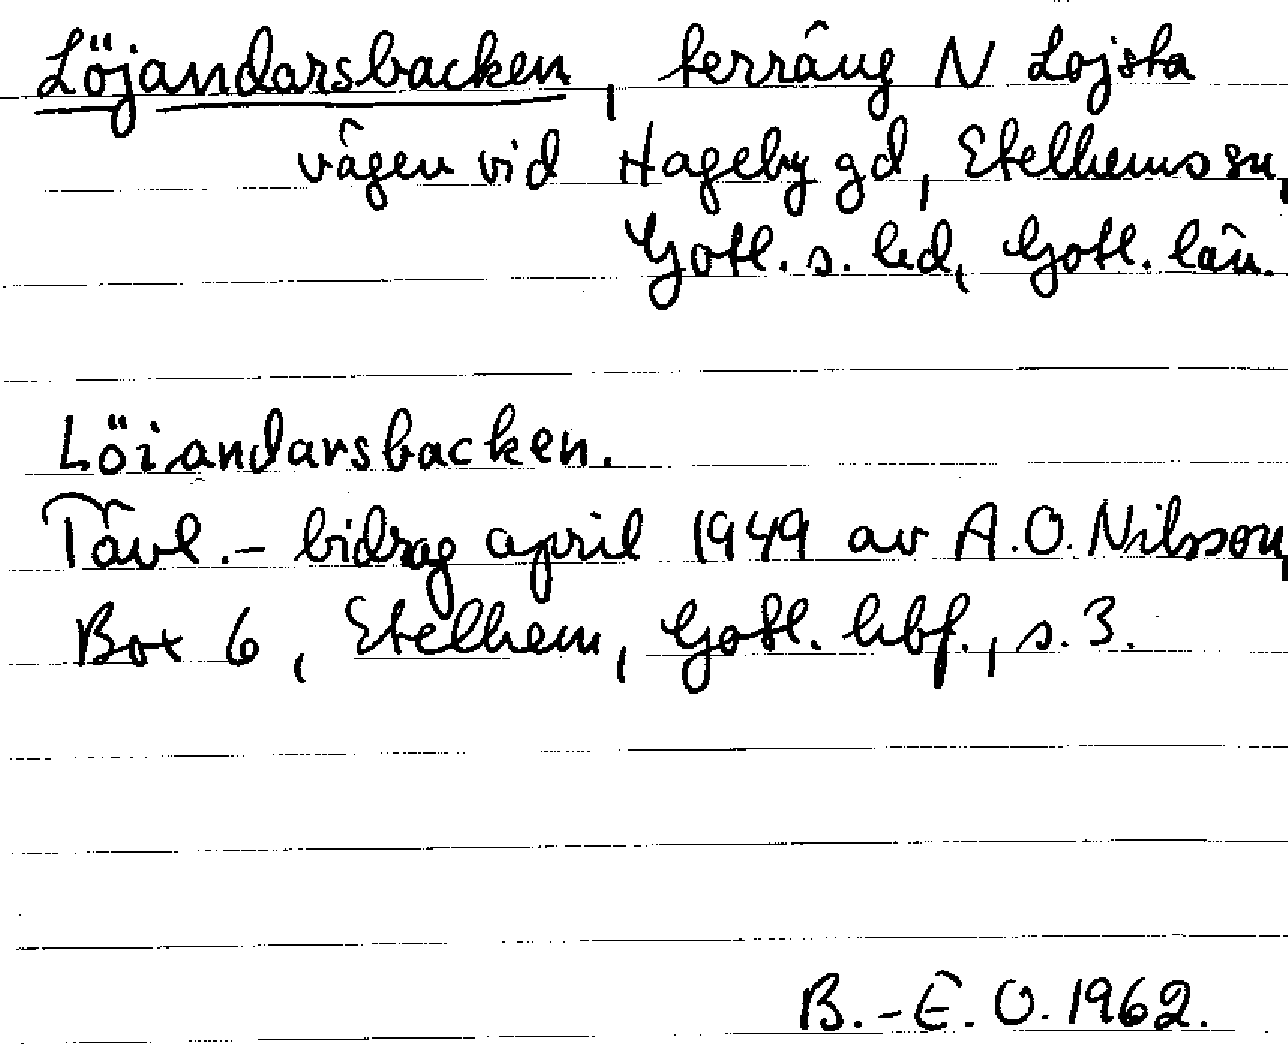 Löjandarsbacken, terräng N Lojsta
vägen vid Hageby gd, Etelhems sn,
Gotl. s. hd, Gotl. län.
Löiandarsbacken.
Tävl.- bidrag april 1949 av A.O. Nilsson,
Box 6, Etelhem, Gotl. hbf., s. 3.
B.-E. O. 1962.